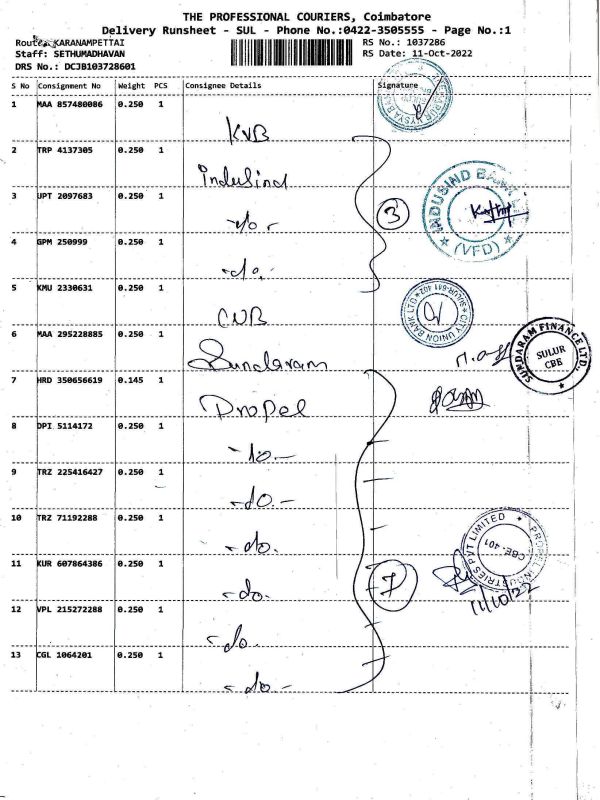 THE PROFESSIONAL COURIERS, Coimbatore
Delivery Runsheet - SUL - Phone No.:0422-3505555 - Page No.:1
Route: KARANAMPETTAI RS No.: 1037286
Staff: SETHUMADHAVAN RS Date: 11-Oct-2022
DRS No.: DCJB103728601
S No Consignment No Weight PCS Consignee Details Signature
1 MAA 857480086 0.250 1
KVB
2 TRP 4137305 0.250 1
Indusind
3 UPT 2097683 0.250 1
3
INDUSIND BANK
(VFD)
4 GPM 250999 0.250 1
-do-
5 KMU 2330631 0.250 1
CUB
CITY UNION BANK LTD * SULUR-641 402 *
6 MAA 295228885 0.250 1
Sundaram
SUNDARAM FINANCE LTD.,
SULUR
CBE
7 HRD 350656619 0.145 1
Propel
8 DPI 5114172 0.250 1
-do-
9 TRZ 225416427 0.250 1
-do-
10 TRZ 71192288 0.250 1
-do-
PROPEL INDUSTRIES PVT LIMITED
CBE-401
11 KUR 607864386 0.250 1
-do-
7
11/10/22
12 VPL 215272288 0.250 1
-do-
13 CGL 1064201 0.250 1
-do-